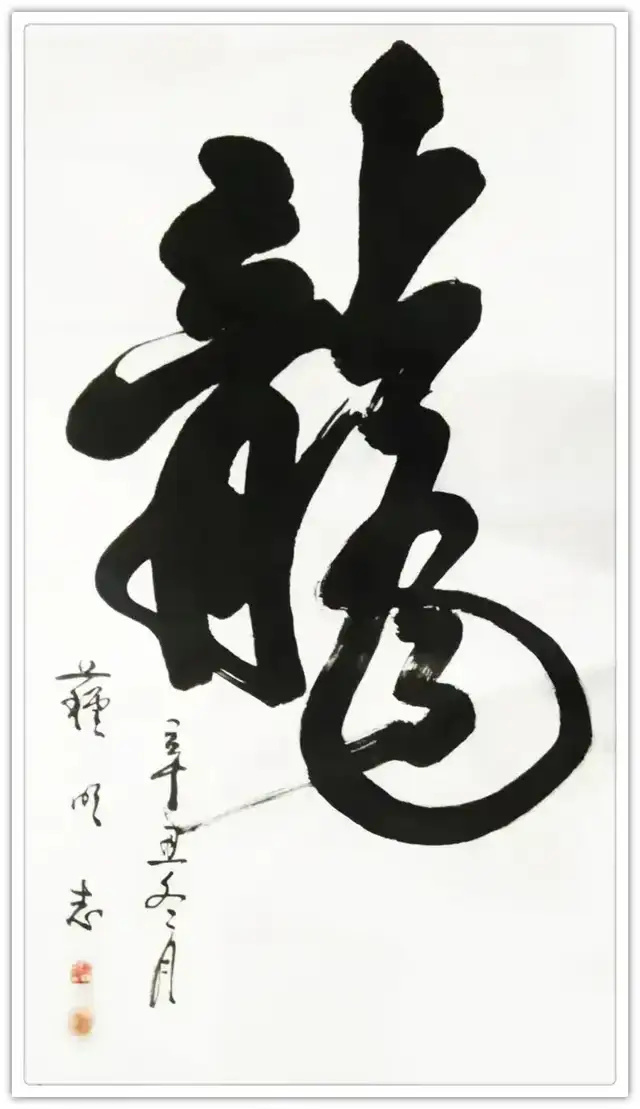 龍
辛丑冬月
明志